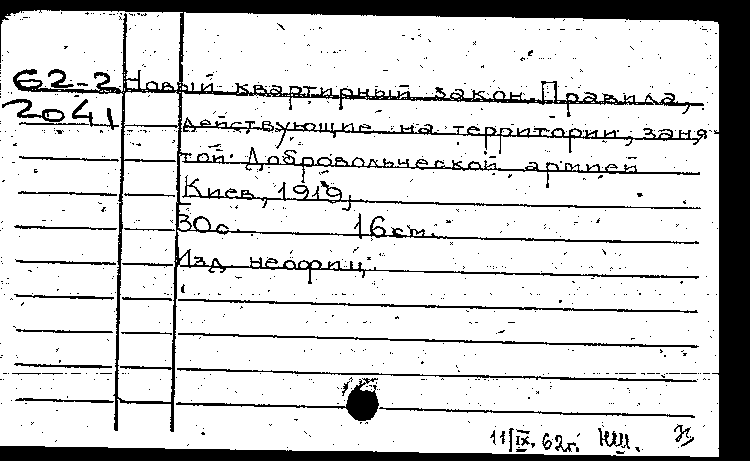 62-2 Новый квартирный закон. Правила,
2041 действующие на территории, заня-
той Добровольческой армией
Киев, 1919,
30с. 16см.
Изд. неофиц.
11/IX. 62г.